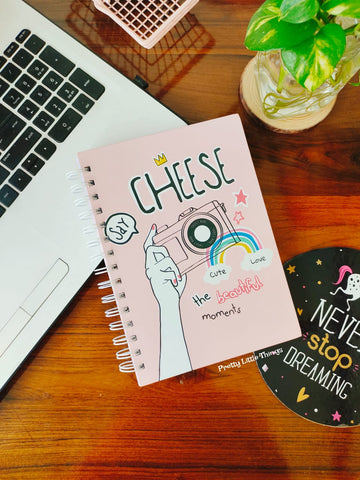 CHEESE
Say
Cute
Love
the beautiful
moments
Pretty Little Things
NEVE
stop
DREAMING